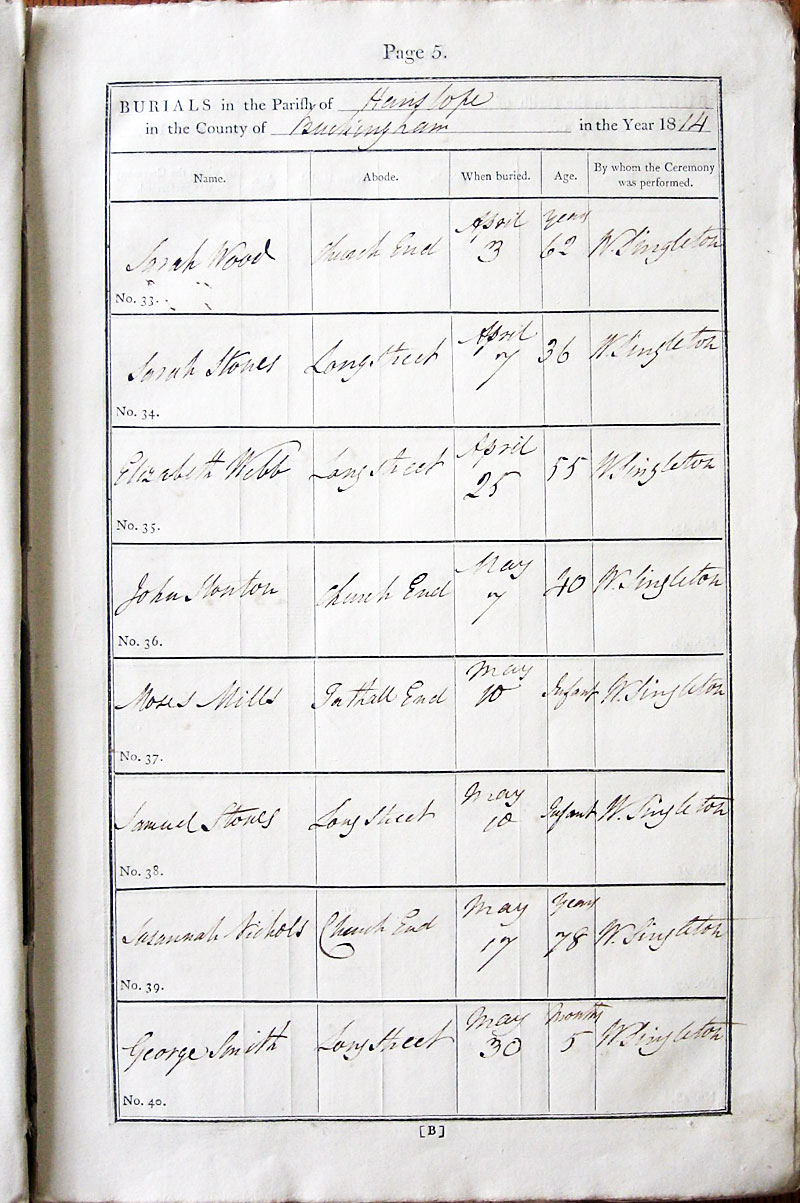 Page 5.
BURIALS in the Parish of Hanslope
in the County of Buckingham in the Year 1814
Name. Abode. When buried. Age. By whom the Ceremony was performed.
April years
Sarah Wood Church End 3 62 W. Singleton
No. 33.
April
Sarah Stones Long Street 7 36 W. Singleton
No. 34.
April
Elizabeth Webb Long Street 25 55 W. Singleton
No. 35.
May
John Church End 7 40 W. Singleton
No. 36.
May
Moses Mills Tathall End 10 Infant W. Singleton
No. 37.
May
Samuel Stones Long Street 10 Infant W. Singleton
No. 38.
May years
Susannah Nichols Church End 17 78 W. Singleton
No. 39.
May months
George Smith Long Street 30 5 W. Singleton
No. 40.
[B]